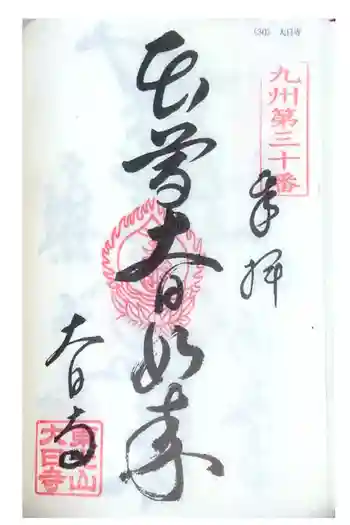 (30) 大日寺
九州第三十番
奉拝
本尊大日如来
大日寺
東光山
大日寺